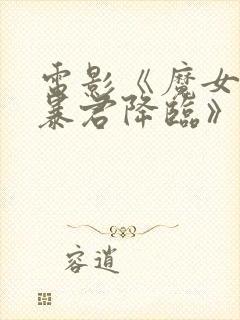 雷影《魔女
暴君降臨》
容逍